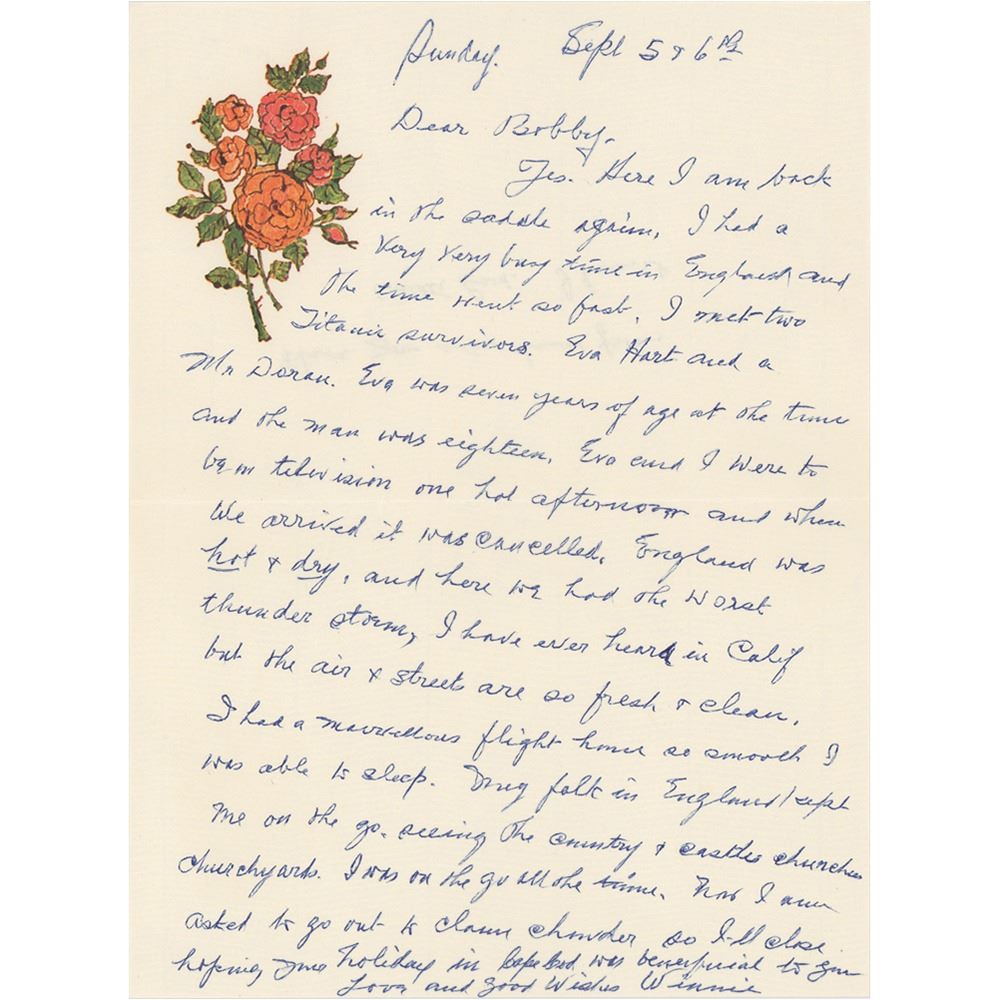 Sunday. Sept 5 & 6th
Dear Bobby.
Yes. Here I am back
in the saddle again, I had a
very very busy time in England and
the time went so fast. I met two
Titanic survivors. Eva Hart and a
Mr Doran. Eva was seven years of age at the time
and the man was eighteen. Eva and I were to
be on television one hot afternoon and when
we arrived it was cancelled. England was
hot & dry, and here we had the worst
thunder storm, I have ever heard in Calif
but the air & streets are so fresh & clean.
I had a marvellous flight home so smooth I
was able to sleep. My folk in England kept
me on the go. seeing the country & castles churches
churchyards. I was on the go all the time. Now I am
asked to go out to clam chowder so I'll close
hoping your holiday in Cape Cod was beneficial to you
Love and good Wishes Winnie